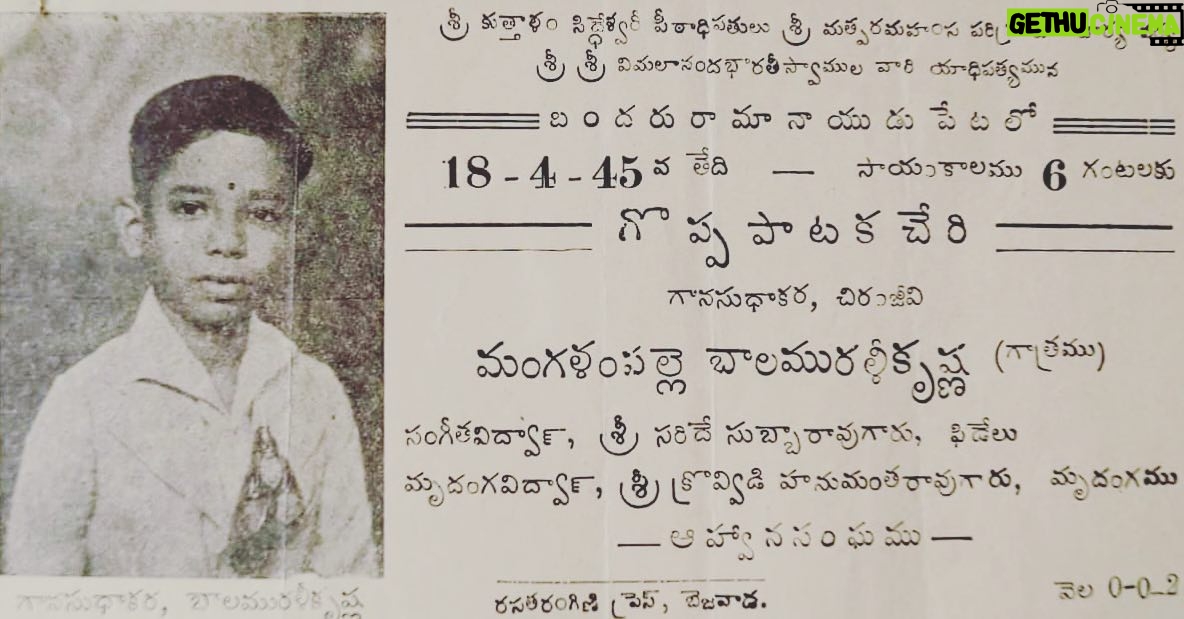 GETHU CINEMA
శ్రీ కుత్తాళం సిద్ధేశ్వరీ పీఠాధిపతులు శ్రీ మత్పరమహంస
శ్రీ శ్రీ విమలానందభారతీస్వాముల వారి యాధిపత్యమున
బందరు రామానాయుడుపేటలో
18-4-45వ తేది — సాయంకాలము 6 గంటలకు
గొప్ప పాటకచేరి
గానసుధాకర, చిరంజీవి
మంగళంపల్లె బాలమురళీకృష్ణ (గాత్రము)
సంగీతవిద్వా౯, శ్రీ సరిదే సుబ్బారావుగారు, ఫిడేలు
మృదంగవిద్వా౯, శ్రీ క్రొవ్విడి హనుమంతరావుగారు, మృదంగము
— ఆహ్వానసంఘము —
గానసుధాకర, బాలమురళీకృష్ణ
రసతరంగిణి ప్రెస్, బెజవాడ.
వెల 0-0-2